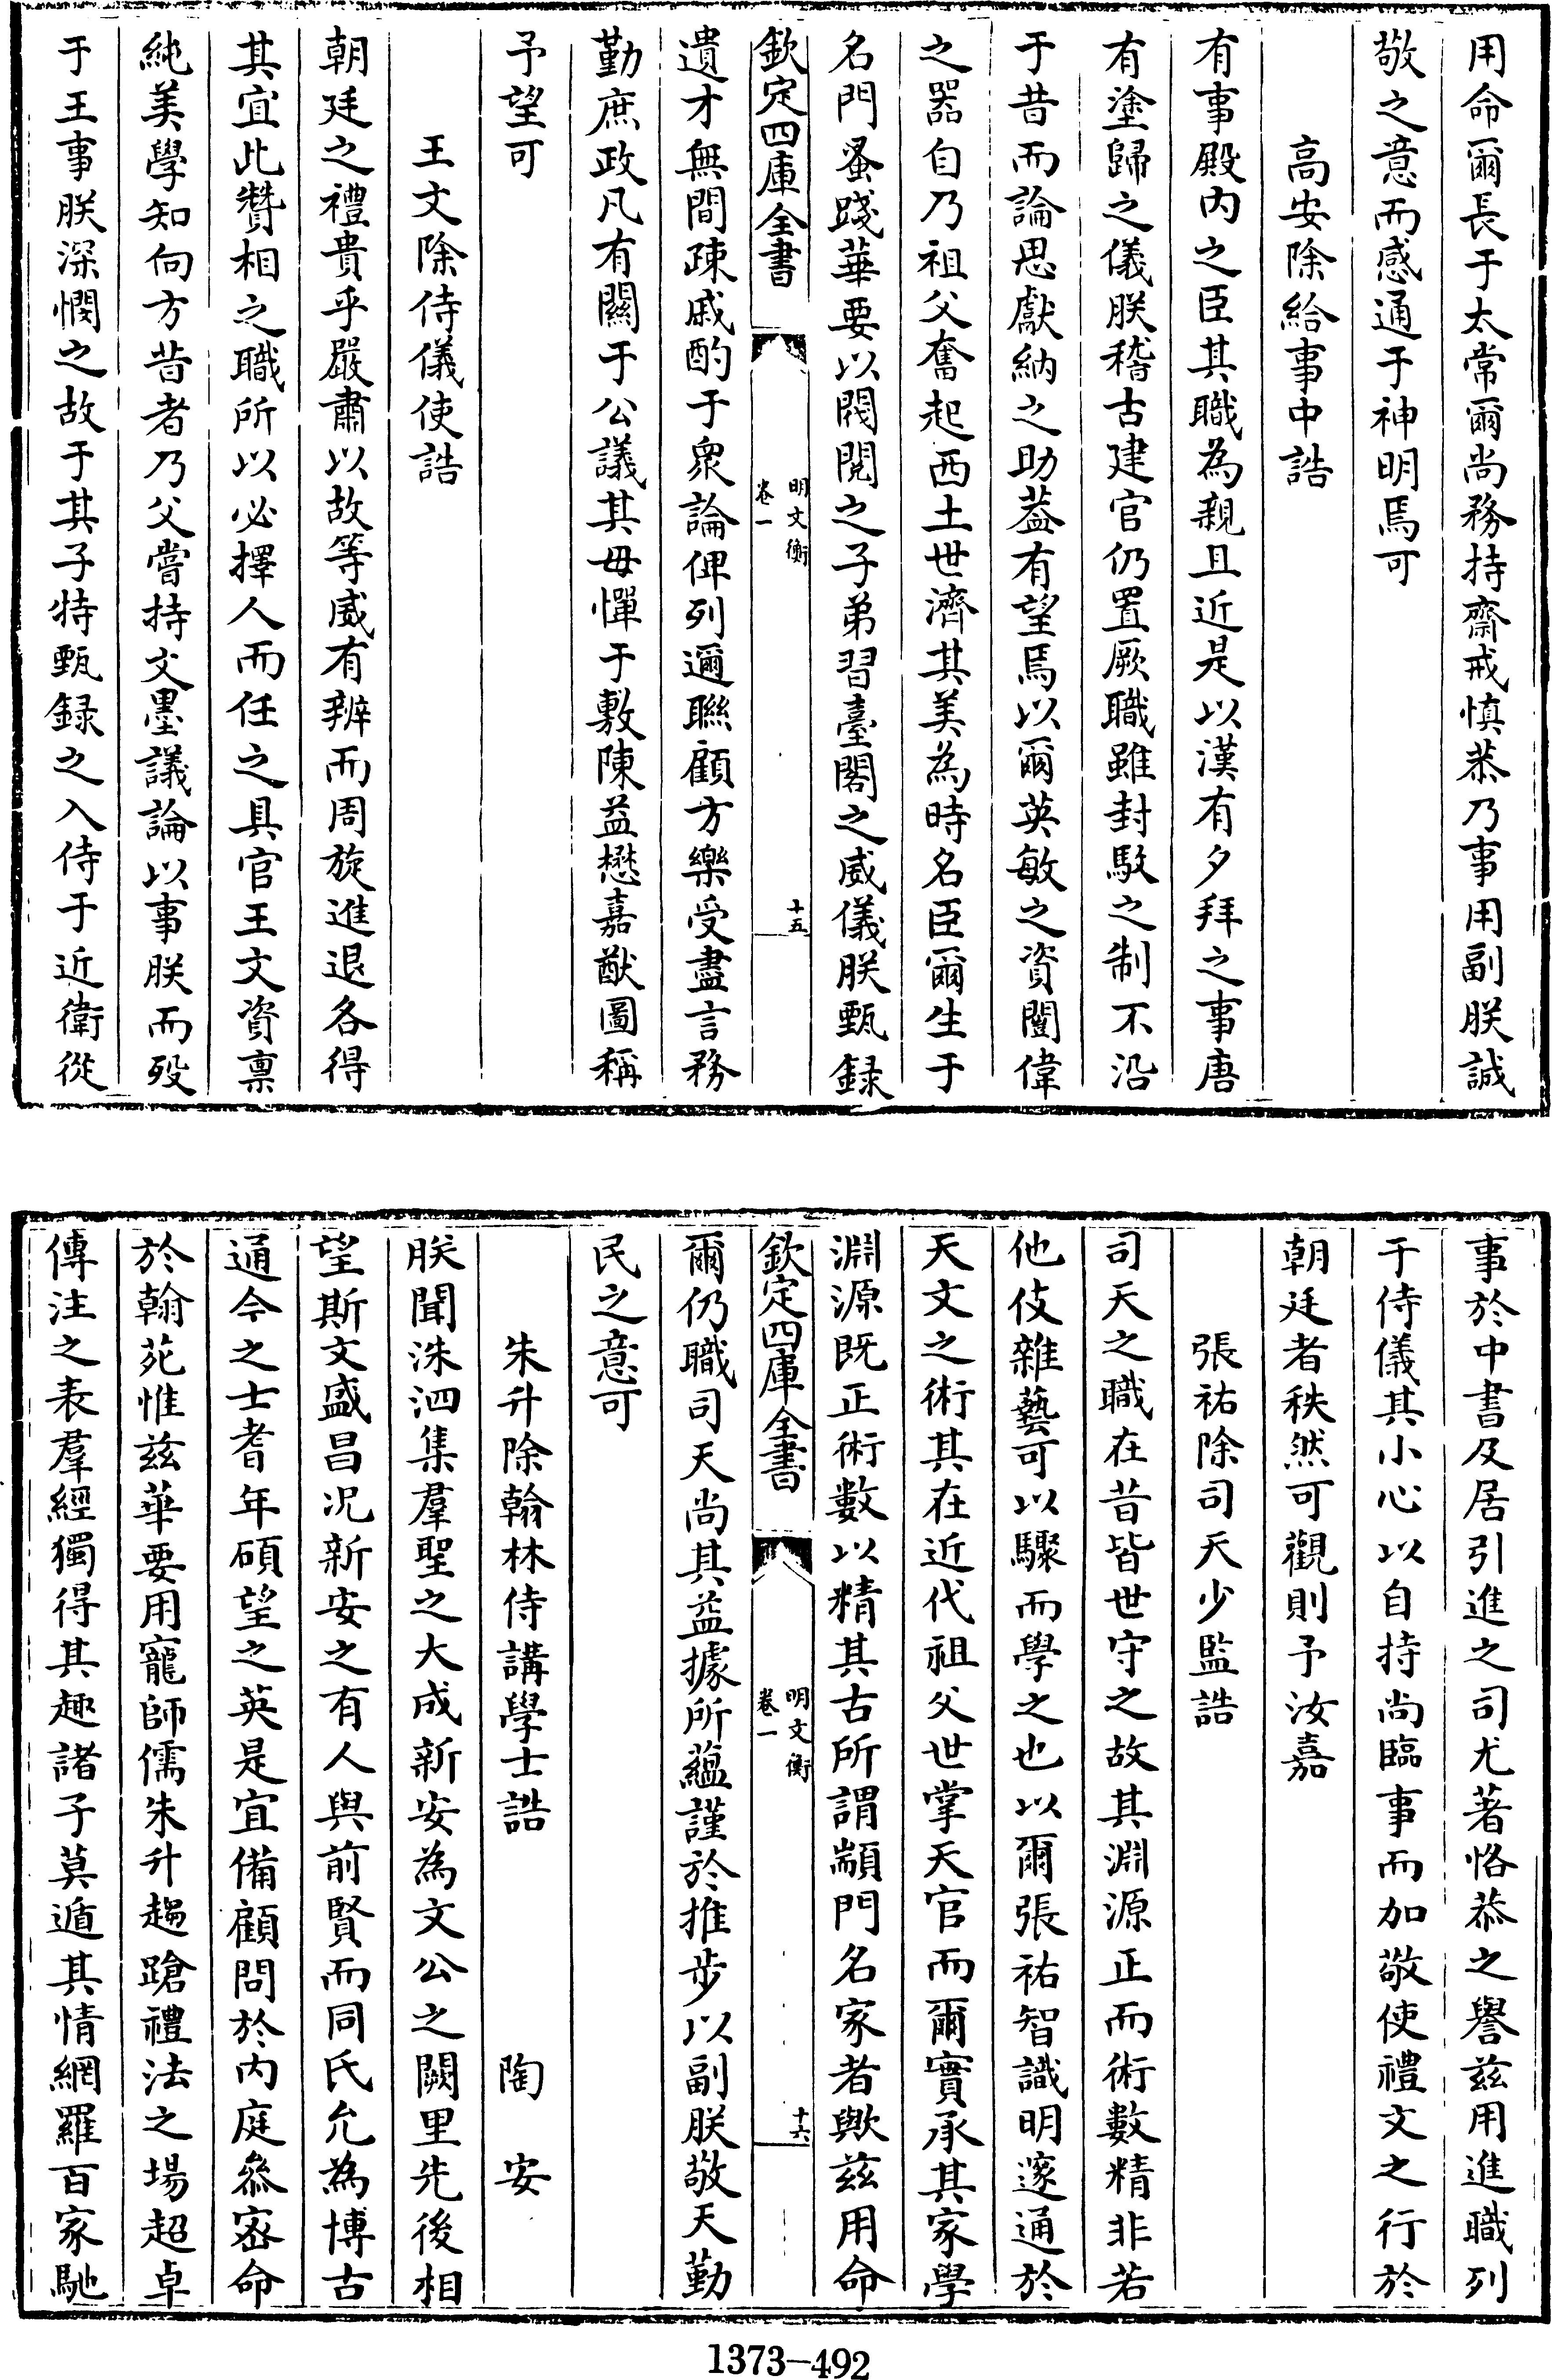 用命爾長于太常爾尚務持齋戒慎恭乃事用副朕誠
敬之意而感通于神明焉可
高安除給事中誥
有事殿内之臣其職為親且近是以漢有夕拜之事唐
有塗歸之儀朕稽古建官仍置厥職雖封駁之制不沿
于昔而論思獻納之助葢有望焉以爾英敏之資閎偉
之器自乃祖父奮起西土世濟其美為時名臣爾生于
名門蚤踐華要以閥閲之子弟習臺閣之威儀朕甄録
欽定四庫全書
明文衡
卷一
十五
遺才無間疎戚酌于衆論俾列邇聯顧方樂受盡言務
勤庶政凡有關于公議其毋憚于敷陳益懋嘉猷圖稱
予望可
王文除侍儀使誥
朝廷之禮貴乎嚴肅以故等威有辨而周旋進退各得
其宜此贊相之職所以必擇人而任之具官王文資禀
純美學知向方昔者乃父嘗持文墨議論以事朕而殁
于王事朕深憫之故于其子特甄録之入侍于近衛從
事於中書及居引進之司尤著恪恭之譽兹用進職列
于侍儀其小心以自持尚臨事而加敬使禮文之行於
朝廷者秩然可觀則予汝嘉
張祐除司天少監誥
司天之職在昔皆世守之故其淵源正而術數精非若
他伎雜藝可以驟而學之也以爾張祐智識明邃通於
天文之術其在近代祖父世掌天官而爾實承其家學
淵源既正術數以精其古所謂顓門名家者歟兹用命
欽定四庫全書
明文衡
卷一
十六
爾仍職司天尚其益據所藴謹於推步以副朕敬天勤
民之意可
朱升除翰林侍講學士誥 陶安
朕聞洙泗集羣聖之大成新安為文公之闕里先後相
望斯文盛昌况新安之有人與前賢而同氏允為博古
通今之士耆年碩望之英是宜備顧問於内庭叅宻命
於翰苑惟兹華要用寵師儒朱升趨蹌禮法之場超卓
傳注之表羣經獨得其趣諸子莫遁其情網羅百家馳
1373-492